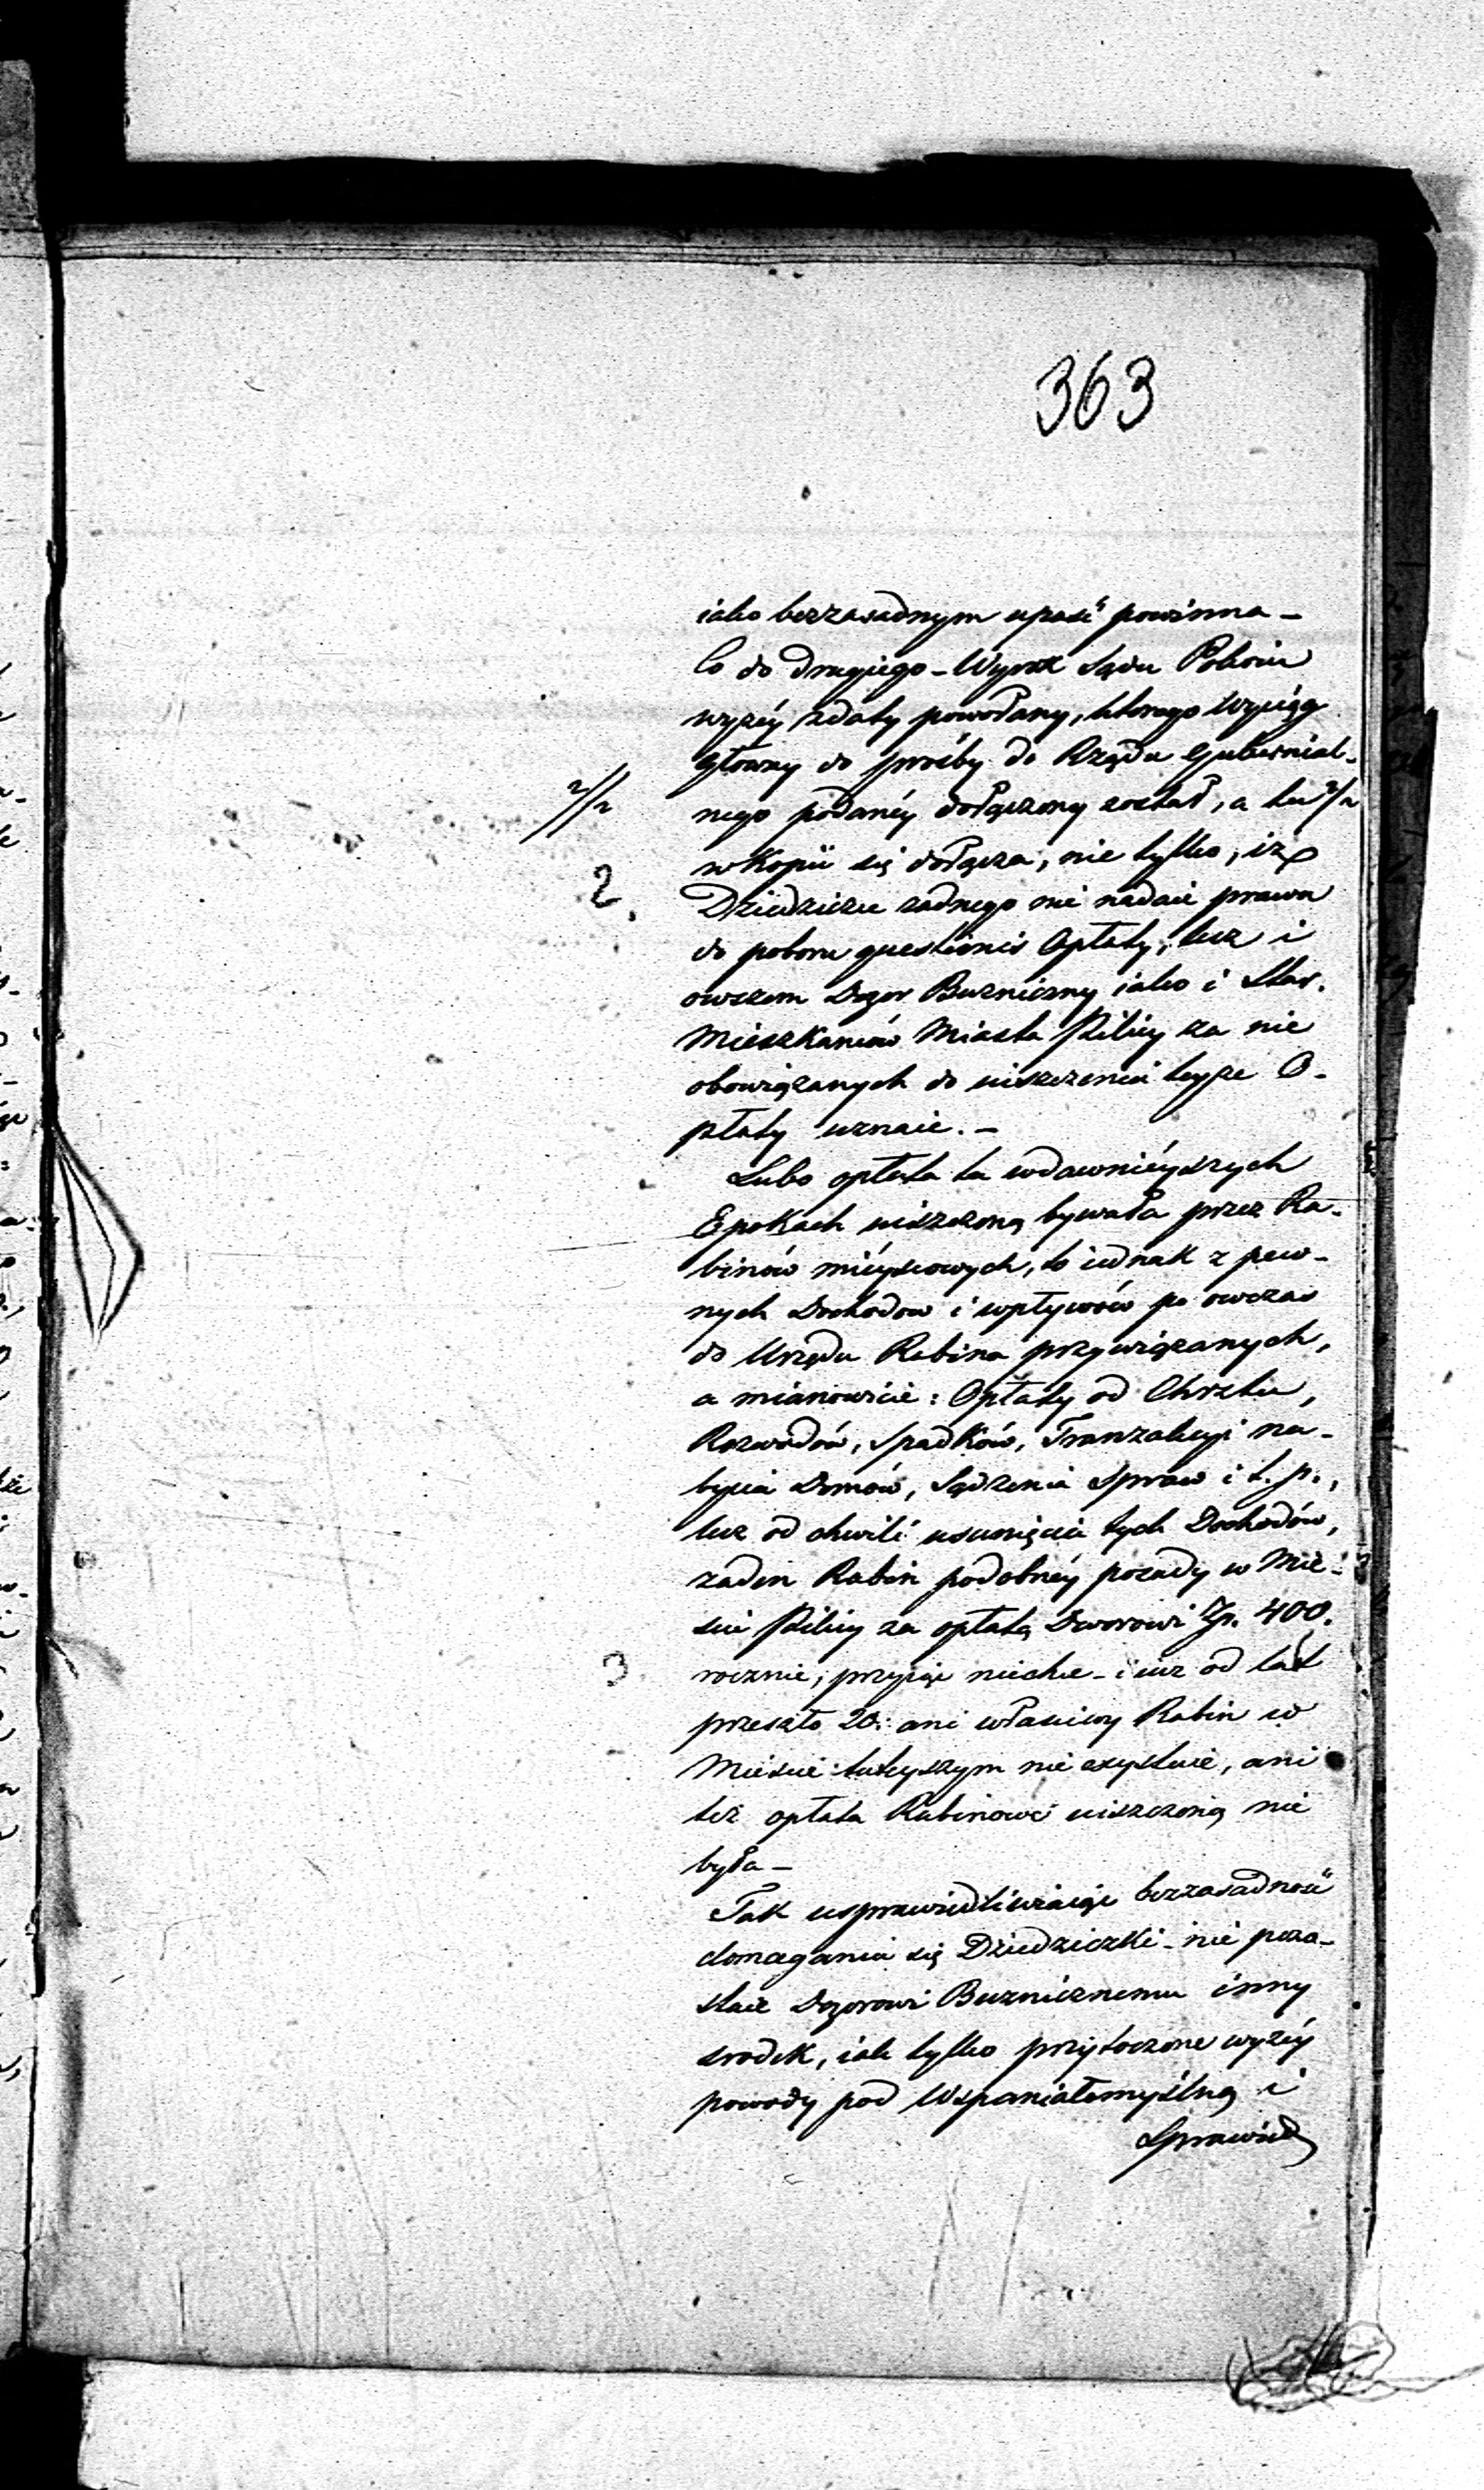 363
iako bezzasadnym upaść powinna –
Co do drugiego – Wyrok Sądu Pokoiu
wyzéy zdaty powołany, ktorego Wyciąg
główny do proźby do Rządu Gubernial-
2/2 nego podanéy dołączony został, a tu 2/2
w Kopii się dołącza, nie tylko, iż
2. Dziedzicze zadnego nie nadaie prawa
do poboru questionis Opłaty, lecz i
owszem Dozor Bużniczny iako i Star.
Mieszkańców Miasta Pilicy za nie
obowiązanych do uiszczenia teyże O-
płaty uznaie. –
Lubo opłata ta wdawnieyszych
Epokach uiszczoną bywała przez Ra-
binów mieyscowych, to iednak z pew-
nych Dochodow i wpływów po owczas
do Urzędu Rabina przywiązanych,
a mianowicie: Opłaty od Chrztu,
Rozwodów, Spadków, Tranzakcyi na-
bycia Domów, Sądzenia Spraw i t. p.,
lecz od chwili usunięcia tych Dochodów,
zaden Rabin podobnéy posady w Mie-
scie Pilicy za opłatą Dworowi Zp. 400.
3 rocznie, przyiąć niechce – i iuz od lat
przeszło 20: ani własciwy Rabin w
Miescie tuteyszym nie exystuie, ani
też opłata Rabinowa uiszczoną nie
była –
Tak usprawiedliwiaiąc bezzasadność
domagania się Dziedziczki – nie pozo-
staie Dozorowi Bużnicznemu inny
srodek, iak tylko przytoczone wyzéy
powody pod Wspaniałomyślną i
Sprawied